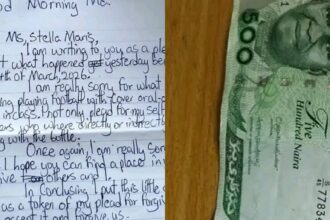 Morning Ms.
Ms, Stella Maris,
I am writing to you as a ple
t what happened yesterday be
th of March, 2026.
I am really sorry for what
ing playing football with
in class. Not only plead for my self
ers who where directly or indirect
with the bottle.
Once again, I am really sorr
I hope you can find a place in
ive others and
In Conclusion, I put this little
as a token of my plead for forgiv
accept it and forgive us.
500
Five
Hundred Naira